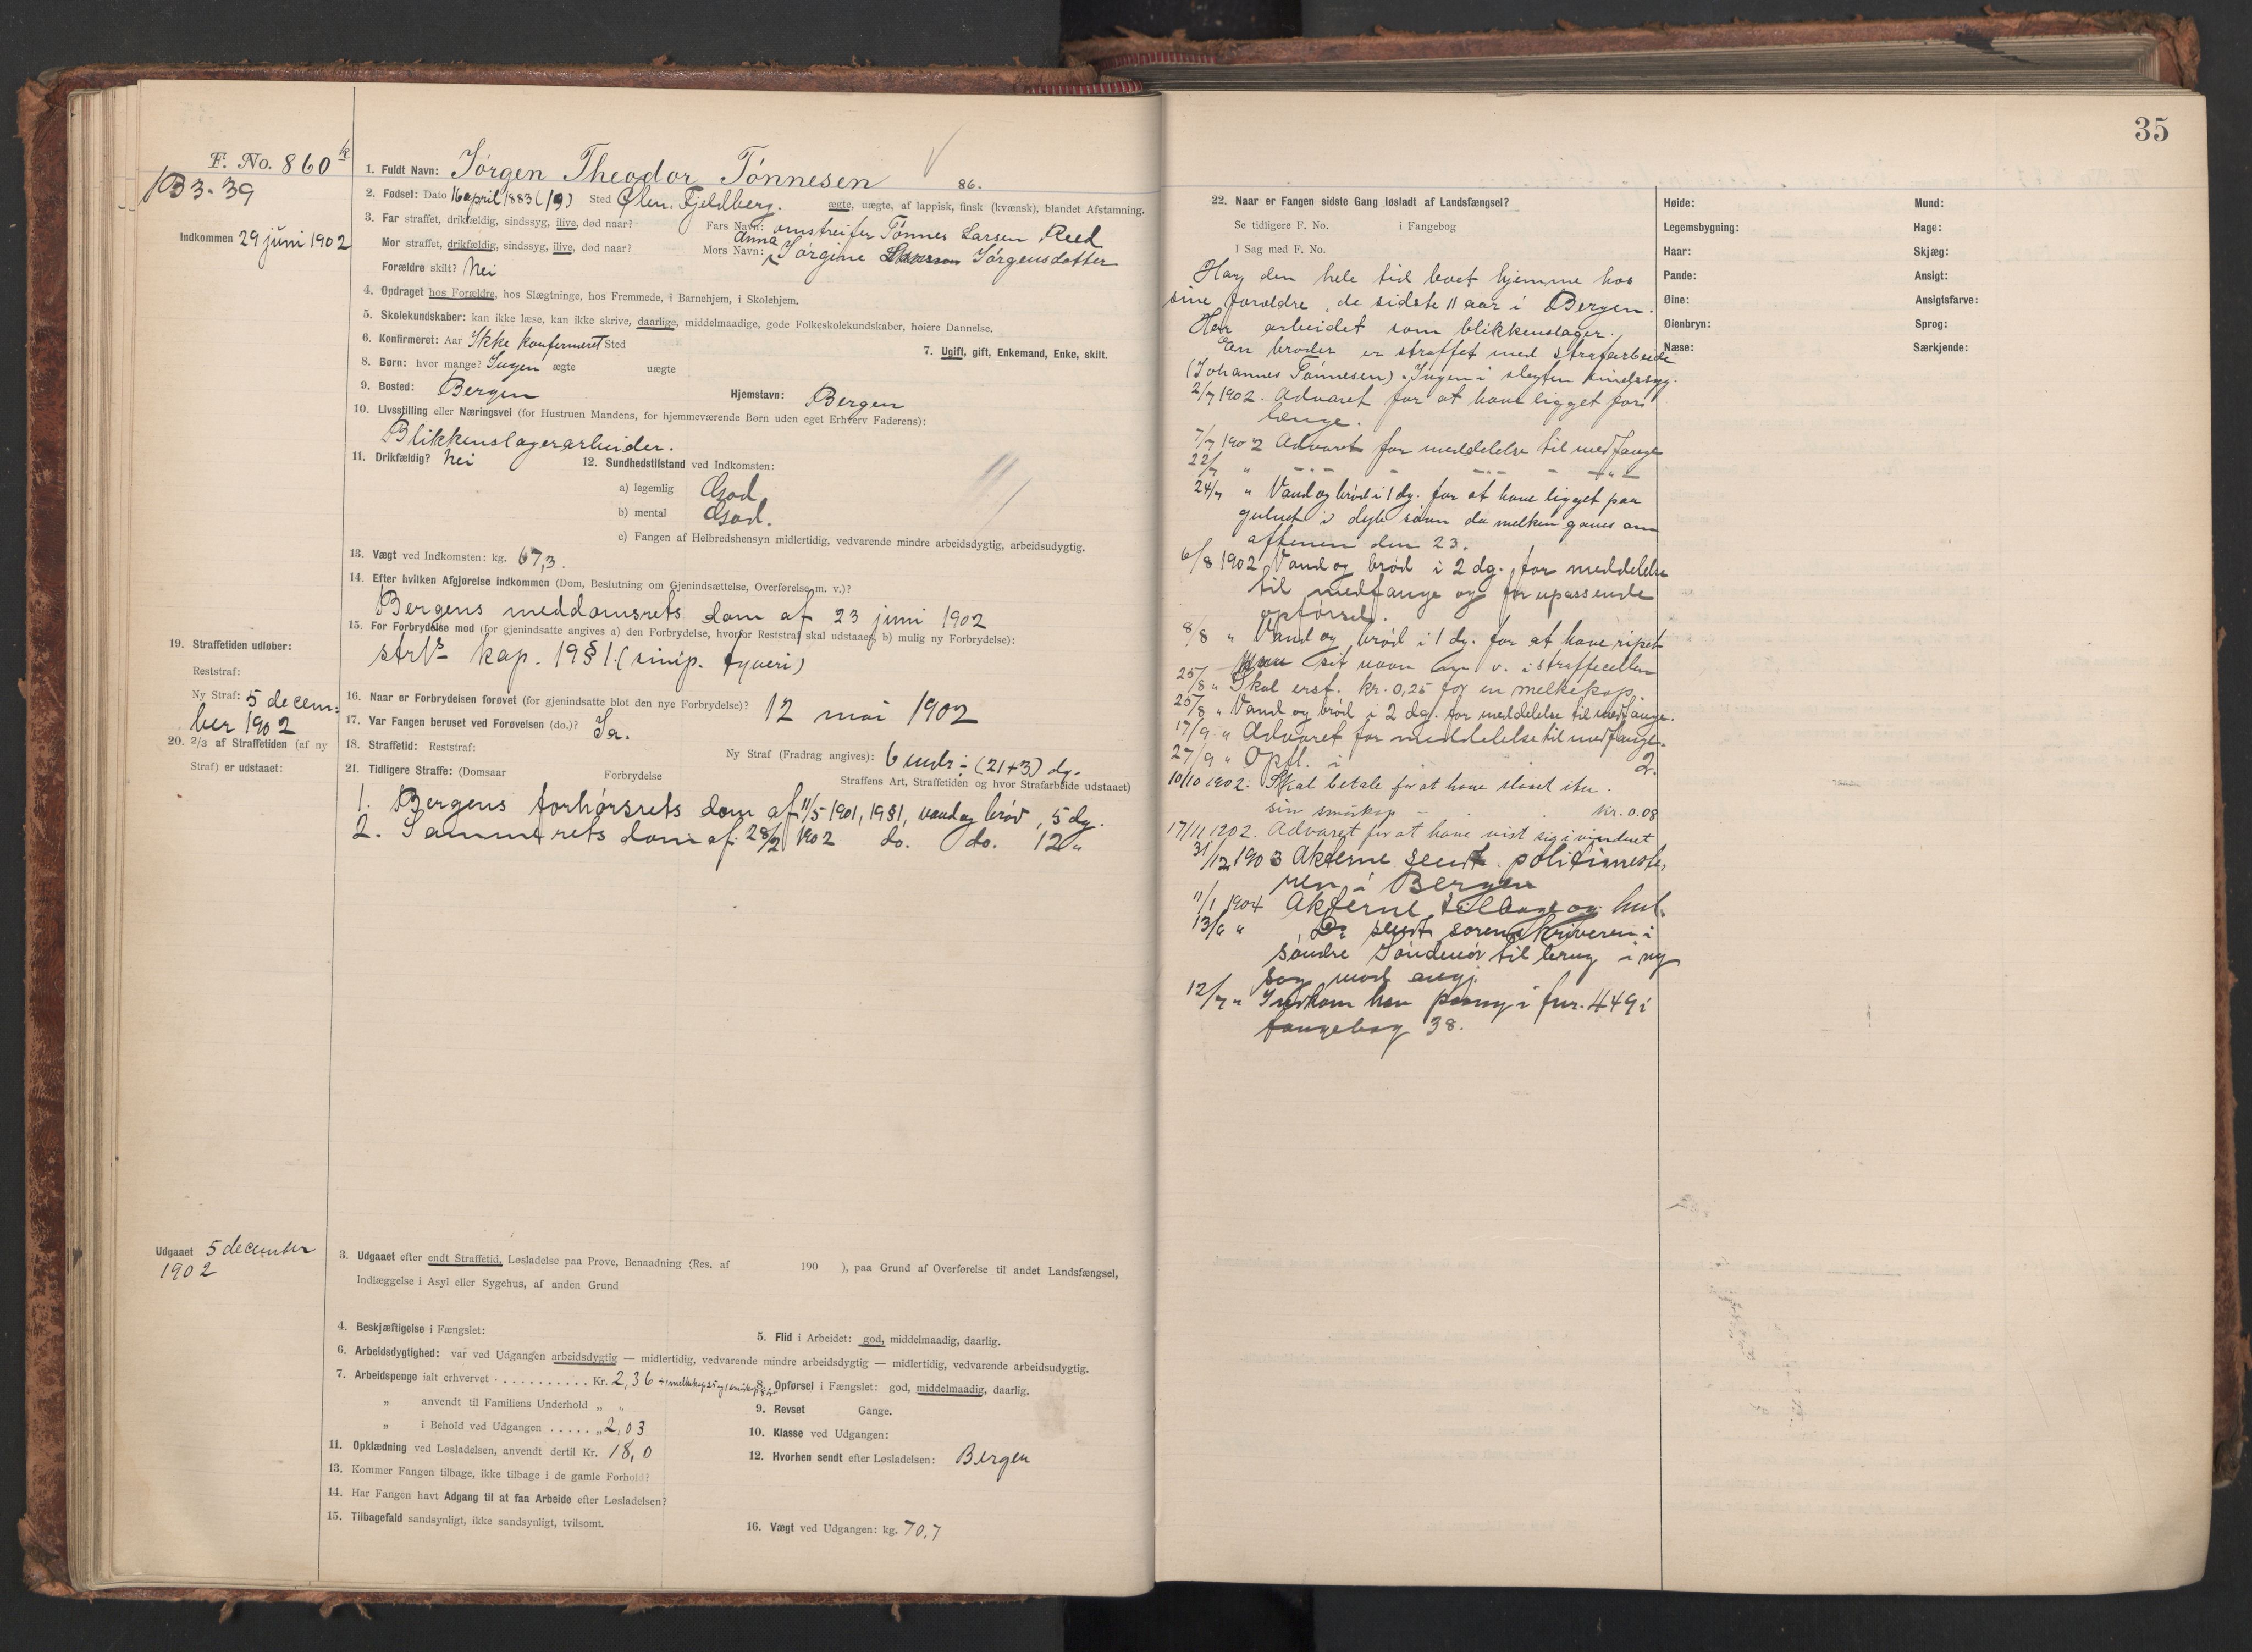 35
F. No. 860 k
B 3-39
Indkommen 29 juni 1902
1. Fuldt Navn: Jörgen Theodor Tönnesen 86.
2. Fødsel: Dato 16 april 1883 (19) Sted Ølen. Fjeldberg. ægte, uægte, af lappisk, finsk (kvænsk), blandet Afstamning.
3. Far straffet, drikfældig, sindssyg, ilive, død naar? Fars Navn: omstreifer Tönnes Larsen Reed
Mor straffet, drikfældig, sindssyg, ilive, død naar? Mors Navn: Anna Jörgine Jörgensdatter
Forældre skilt? Nei
4. Opdraget hos Forældre, hos Slægtninge, hos Fremmede, i Barnehjem, i Skolehjem.
5. Skolekundskaber: kan ikke læse, kan ikke skrive, daarlige, middelmaadige, gode Folkeskolekundskaber, høiere Dannelse.
6. Konfirmeret: Aar Ikke konfermeret Sted
7. Ugift, gift, Enkemand, Enke, skilt.
8. Børn: hvor mange? Ingen ægte uægte
9. Bosted: Bergen Hjemstavn: Bergen
10. Livsstilling eller Næringsvei (for Hustruen Mandens, for hjemmeværende Børn uden eget Erhverv Faderens):
Blikkenslagerarbeider.
11. Drikfældig? Nei 12. Sundhedstilstand ved Indkomsten:
a) legemlig God
b) mental God.
c) Fangen af Helbredshensyn midlertidig, vedvarende mindre arbeidsdygtig, arbeidsudygtig.
13. Vægt ved Indkomsten: kg. 67,3.
14. Efter hvilken Afgjørelse indkommen (Dom, Beslutning om Gjenindsættelse, Overførelse m. v.)?
Bergens meddomsrets dom af 23 juni 1902
15. For Forbrydelse mod (for gjenindsatte angives a) den Forbrydelse, hvorfor Reststraf skal udstaaes, b) mulig ny Forbrydelse):
strl's kap. 19 § 1. (simp. tyveri)
16. Naar er Forbrydelsen forøvet (for gjenindsatte blot den nye Forbrydelse)? 12 mai 1902
17. Var Fangen beruset ved Forøvelsen (do.)? Ja.
18. Straffetid: Reststraf: Ny Straf (Fradrag angives): 6 mdr ÷ (21+3) dg.
19. Straffetiden udløber:
Reststraf:
Ny Straf: 5 decem-
ber 1902
20. 2/3 af Straffetiden (af ny
Straf) er udstaaet:
21. Tidligere Straffe: (Domsaar Forbrydelse Straffens Art, Straffetiden og hvor Strafarbeide udstaaet)
1. Bergens forhörsrets dom af 11/5 1901, 19§1, vand og bröd, 5 dg.
2. Samme rets dom af 28/2 1902 do. do. 12 "
Udgaaet 5 december
1902
3. Udgaaet efter endt Straffetid, Løsladelse paa Prøve, Benaadning (Res. af 190 ), paa Grund af Overførelse til andet Landsfængsel,
Indlæggelse i Asyl eller Sygehus, af anden Grund
4. Beskjæftigelse i Fængslet:
5. Flid i Arbeidet: god, middelmaadig, daarlig.
6. Arbeidsdygtighed: var ved Udgangen arbeidsdygtig — midlertidig, vedvarende mindre arbeidsdygtig — midlertidig, vedvarende arbeidsudygtig.
7. Arbeidspenge ialt erhvervet . . . . . . . . . . . Kr. 2,36 ÷ 1 melkekop 25 og 1 smörkop 8 ör
8. Opførsel i Fængslet: god, middelmaadig, daarlig.
" anvendt til Familiens Underhold " "
9. Revset Gange.
" i Behold ved Udgangen . . . . . " 2,03
10. Klasse ved Udgangen:
11. Opklædning ved Løsladelsen, anvendt dertil Kr. 18,0
12. Hvorhen sendt efter Løsladelsen: Bergen
13. Kommer Fangen tilbage, ikke tilbage i de gamle Forhold?
14. Har Fangen havt Adgang til at faa Arbeide efter Løsladelsen?
15. Tilbagefald sandsynligt, ikke sandsynligt, tvilsomt.
16. Vægt ved Udgangen: kg. 70,7
22. Naar er Fangen sidste Gang løsladt af Landsfængsel?
Se tidligere F. No. i Fangebog
I Sag med F. No.
Har den hele tid boet hjemme hos
sine foreldre, de sidste 11 aar i Bergen.
Har arbeidet som blikkenslager.
En broder er straffet med strafarbeide
(Johannes Tönnesen). Ingen i slegten sindssyg.
2/7 1902. Advaret for at have ligget for
længe.
7/7 1902 Advaret for meddelelse til medfange
22/7 " - " - - " - - " -
24/7 " Vand og bröd i 1 dg. for at have ligget paa
gulvet i dyb sövn da melken gaves om
aftenen den 23.
6/8 1902 Vand og bröd i 2 dg. for meddelelse
til medfange og for upassende
opförsel.
8/8 " Vand og bröd i 1 dg. for at have ripet
sit navn m. v. i straffecellen
25/8 " Skal erst. kr. 0,25 for en melkekop.
25/8 " Vand og bröd i 2 dg. for meddelelse til medfange.
17/9 " Advaret for meddelelse til medfange.
27/9 " Opfl. i 2.
10/10 1902. Skal betale for at have slaaet itu
sin smörkop - . . kr. 0.08
17/11 1902. Advaret for at have vist sig i vinduet
31/12 1903 Akterne sendt politimeste-
ren i Bergen
11/1 1904 Akterne tilbage og hul.
13/6 " Do sendt sorenskriveren i
söndre Söndmör til brug i ny
sag mod angj.
12/7 " Indkom han paany i fnr. 449 i
fangebog 38.
Høide:
Legemsbygning:
Haar:
Pande:
Øine:
Øienbryn:
Næse:
Mund:
Hage:
Skjæg:
Ansigt:
Ansigtsfarve:
Sprog:
Særkjende: